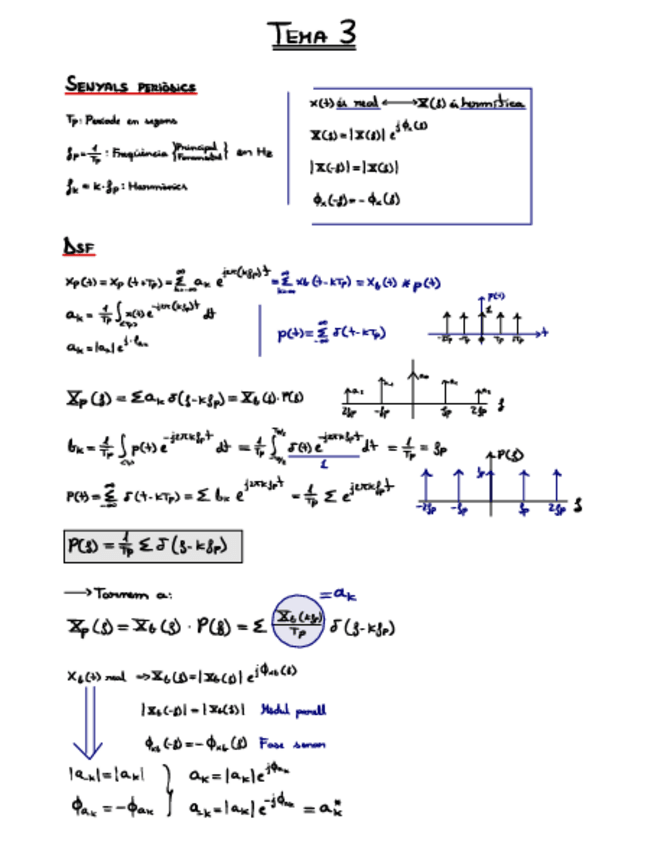 TEMA 3
SENYALS PERIÒDICS
Tp: Període en segons
fp = 1/Tp : Freqüència {Principal Fonamental} en Hz
fk = k·fp : Harmònics
x(t) és real ⟷ X(f) és hermítica
X(f) = |X(f)| e^{jϕx(f)}
|X(-f)| = |X(f)|
ϕx(-f) = -ϕx(f)
DSF
xp(t) = xp(t+Tp) = Σ_{k=-∞}^{∞} ak e^{j2π(kfp)t} = Σ_{k=-∞}^{∞} xb(t-kTp) = xb(t) * p(t)
ak = 1/Tp ∫_{<Tp>} x(t) e^{-j2π(kfp)t} dt
ak = |ak| e^{j·ϕak}
p(t) = Σ_{-∞}^{∞} δ(t-kTp)
p(t)
1
-2Tp -Tp 0 Tp 2Tp t
Xp(f) = Σ ak δ(f-kfp) = Xb(f)·P(f)
2fp -fp fp 2fp f
bk = 1/Tp ∫_{<Tp>} p(t) e^{-j2πkfpt} dt = 1/Tp ∫_{-Tp/2}^{Tp/2} δ(t) e^{-j2πkfpt} dt = 1/Tp = fp
1
P(t) = Σ_{-∞}^{∞} δ(t-kTp) = Σ bk e^{j2πkfpt} = 1/Tp Σ e^{j2πkfpt}
P(f)
fp
-2fp -fp fp 2fp f
P(f) = 1/Tp Σ δ(f-kfp)
⟶ Tornem a:
= ak
Xp(f) = Xb(f) · P(f) = Σ Xb(kfp)/Tp δ(f-kfp)
xb(t) real ⇒ Xb(f) = |Xb(f)| e^{jϕxb(f)}
|Xb(-f)| = |Xb(f)| Mòdul parell
ϕxb(-f) = -ϕxb(f) Fase senar
|ak| = |ak| } ak = |ak| e^{jϕak}
ϕak = -ϕak } ak = |ak| e^{-jϕak} = ak*